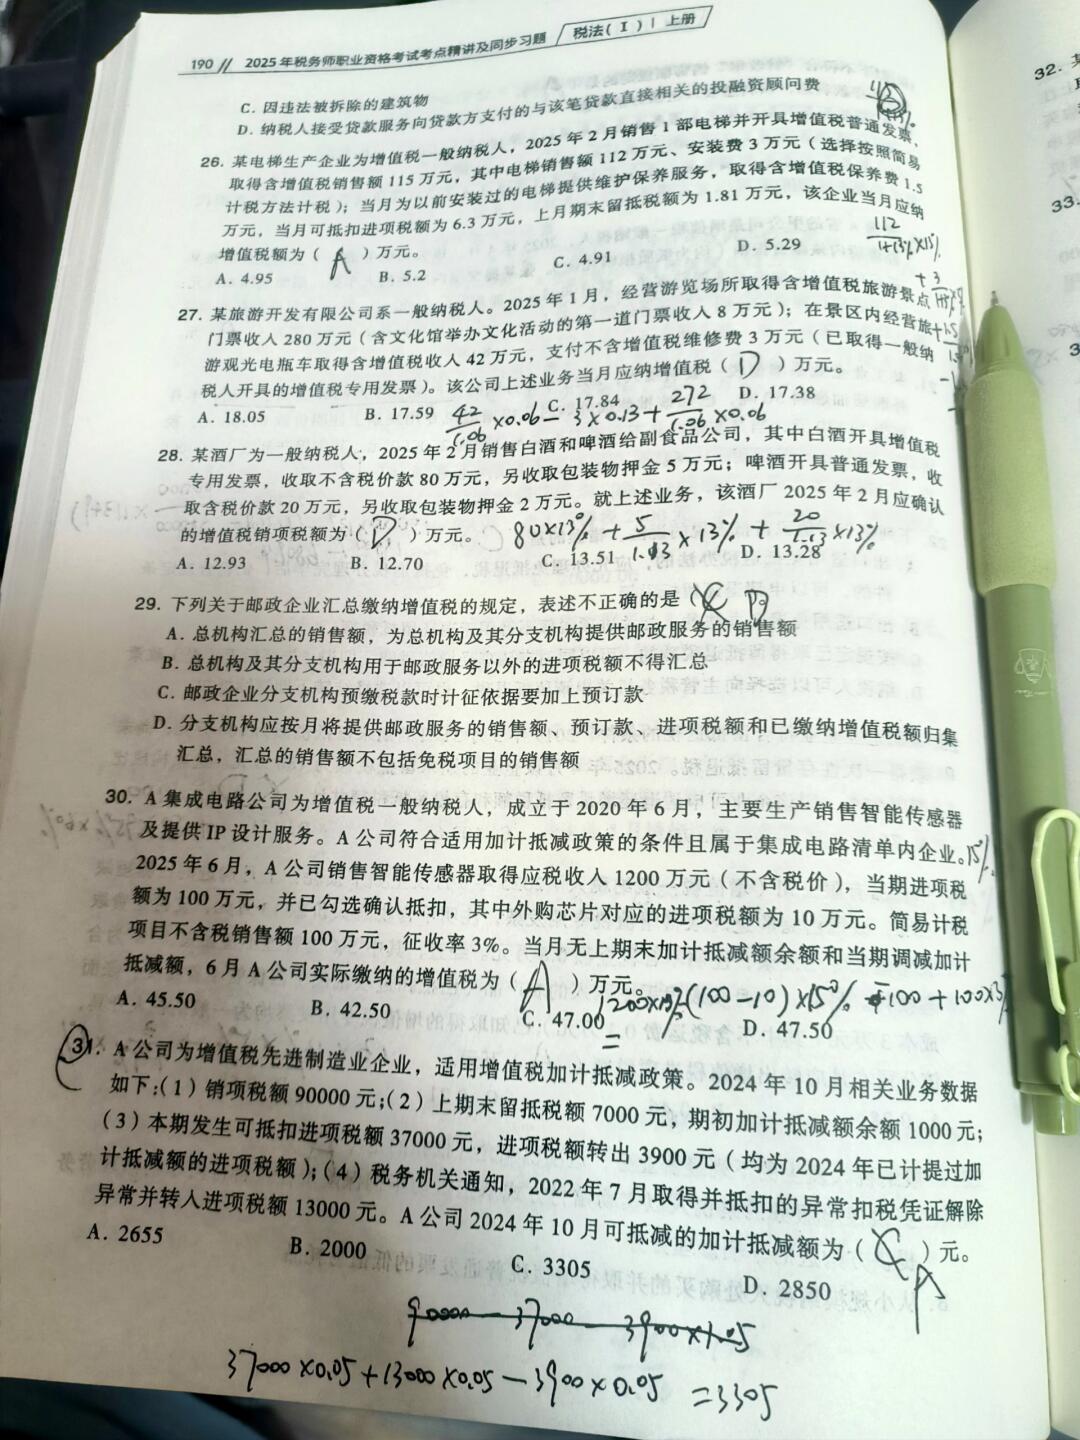 190 // 2025年税务师职业资格考试考点精讲及同步习题 税法(Ⅰ)| 上册
C. 因违法被拆除的建筑物
D. 纳税人接受贷款服务向贷款方支付的与该笔贷款直接相关的投融资顾问费
26. 某电梯生产企业为增值税一般纳税人，2025年2月销售1部电梯并开具增值税普通发票，
取得含增值税销售额115万元，其中电梯销售额112万元、安装费3万元（选择按照简易
计税方法计税）；当月为以前安装过的电梯提供维护保养服务，取得含增值税保养费1.5
万元，当月可抵扣进项税额为6.3万元，上月期末留抵税额为1.81万元，该企业当月应纳
增值税额为（ A ）万元。
112
1+13% ×13%
A. 4.95 B. 5.2 C. 4.91 D. 5.29
+ 3
27. 某旅游开发有限公司系一般纳税人。2025年1月，经营游览场所取得含增值税旅游景点
门票收入280万元（含文化馆举办文化活动的第一道门票收入8万元）；在景区内经营旅
游观光电瓶车取得含增值税收入42万元，支付不含增值税维修费3万元（已取得一般纳
税人开具的增值税专用发票）。该公司上述业务当月应纳增值税（ D ）万元。
A. 18.05 B. 17.59 C. 17.84 D. 17.38
42/1.06 ×0.06 - 3×0.13 + 272/1.06 ×0.06
28. 某酒厂为一般纳税人，2025年2月销售白酒和啤酒给副食品公司，其中白酒开具增值税
专用发票，收取不含税价款80万元，另收取包装物押金5万元；啤酒开具普通发票，收
取含税价款20万元，另收取包装物押金2万元。就上述业务，该酒厂2025年2月应确认
的增值税销项税额为（ D ）万元。 80×13% + 5/1.13 ×13% + 20/1.13 ×13%
A. 12.93 B. 12.70 C. 13.51 D. 13.28
29. 下列关于邮政企业汇总缴纳增值税的规定，表述不正确的是（ C D
A. 总机构汇总的销售额，为总机构及其分支机构提供邮政服务的销售额
B. 总机构及其分支机构用于邮政服务以外的进项税额不得汇总
C. 邮政企业分支机构预缴税款时计征依据要加上预订款
D. 分支机构应按月将提供邮政服务的销售额、预订款、进项税额和已缴纳增值税额归集
汇总，汇总的销售额不包括免税项目的销售额
30. A集成电路公司为增值税一般纳税人，成立于2020年6月，主要生产销售智能传感器
及提供IP设计服务。A公司符合适用加计抵减政策的条件且属于集成电路清单内企业。15%
2025年6月，A公司销售智能传感器取得应税收入1200万元（不含税价），当期进项税
额为100万元，并已勾选确认抵扣，其中外购芯片对应的进项税额为10万元。简易计税
项目不含税销售额100万元，征收率3%。当月无上期末加计抵减额余额和当期调减加计
抵减额，6月A公司实际缴纳的增值税为（ A ）万元。
1200×13%-(100-10)×15% -100+100×3%
A. 45.50 B. 42.50 C. 47.00 D. 47.50
=
31. A公司为增值税先进制造业企业，适用增值税加计抵减政策。2024年10月相关业务数据
如下：（1）销项税额90000元；（2）上期末留抵税额7000元，期初加计抵减额余额1000元；
（3）本期发生可抵扣进项税额37000元，进项税额转出3900元（均为2024年已计提过加
计抵减额的进项税额）；（4）税务机关通知，2022年7月取得并抵扣的异常扣税凭证解除
异常并转入进项税额13000元。A公司2024年10月可抵减的加计抵减额为（ C ）元。
A
A. 2655 B. 2000 C. 3305 D. 2850
90000-37000-3900×1.05
37000×0.05+13000×0.05-3900×0.05 =3305
32.
33.